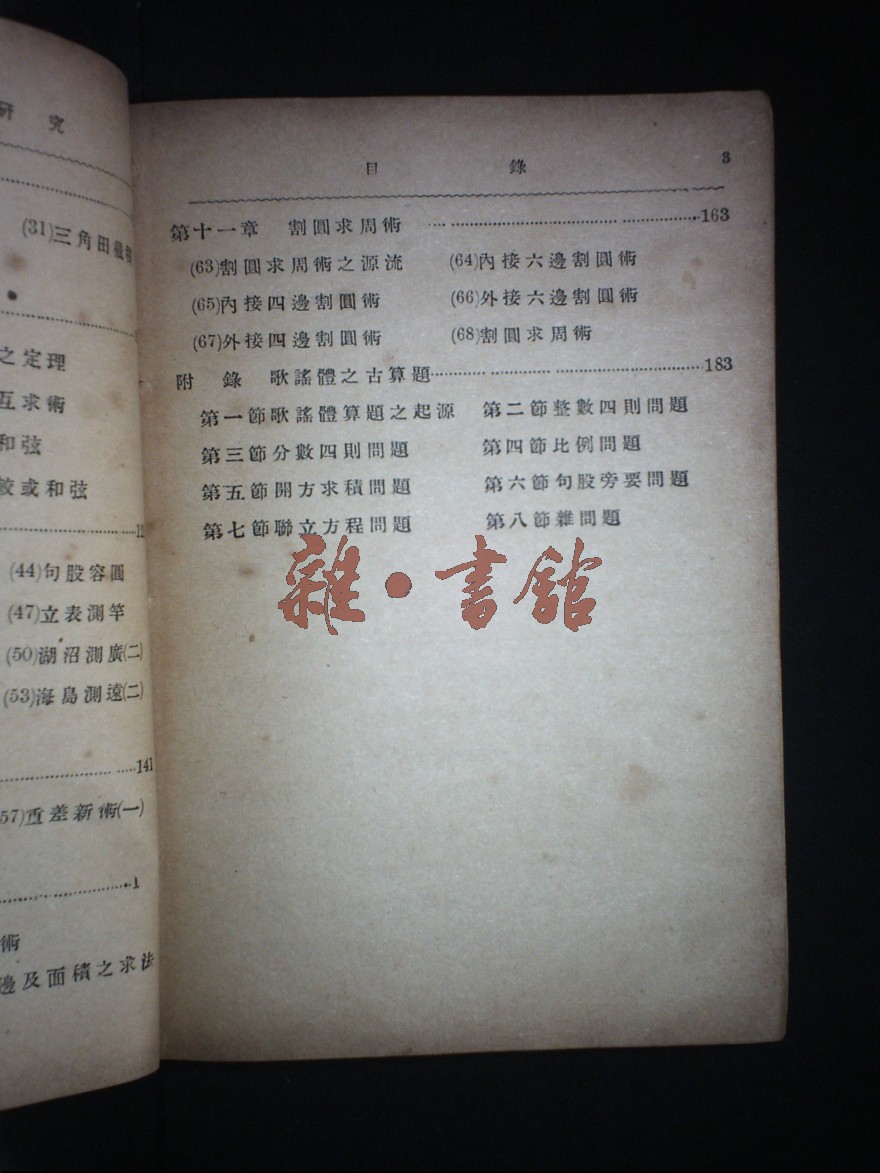 研 究
(31)三角田截積
之定理
互求術
和弦
較或和弦
(44)句股容圓
(47)立表測竿
(50)湖沼測廣(二)
(53)海島測遠(二)
141
57)重差新術(一)
術
邊及面積之求法
目 錄 3
第十一章 割圓求周術 163
(63)割圓求周術之源流 (64)內接六邊割圓術
(65)內接四邊割圓術 (66)外接六邊割圓術
(67)外接四邊割圓術 (68)割圓求周術
附 錄 歌謠體之古算題 183
第一節歌謠體算題之起源 第二節整數四則問題
第三節分數四則問題 第四節比例問題
第五節開方求積問題 第六節句股旁要問題
第七節聯立方程問題 第八節雜問題
雜·書館